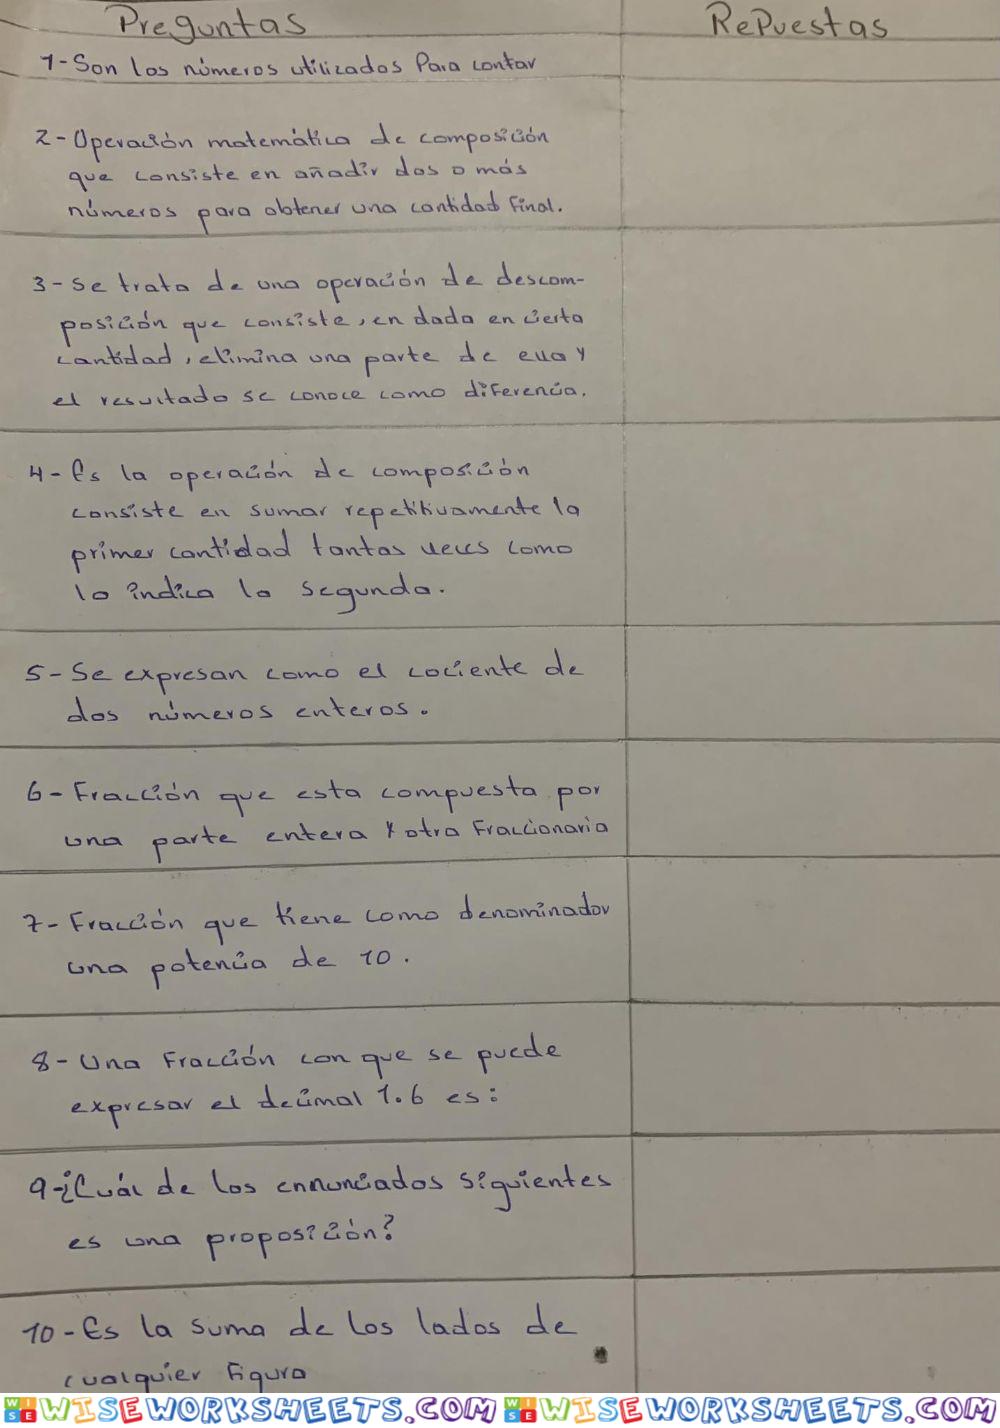 Preguntas
Repuestas
1-Son los números utilizados Para contar
2-Operación matemática de composición
que consiste en añadir dos o más
números para obtener una cantidad final.
3-Se trata de una operación de descom-
posición que consiste, en dada en cierta
cantidad, elimina una parte de ella y
el resultado se conoce como diferencia.
4-Es la operación de composición
consiste en sumar repetitivamente la
primer cantidad tantas veces como
lo indica la segunda.
5-Se expresan como el cociente de
dos números enteros.
6-Fracción que esta compuesta por
una parte entera y otra Fraccionaria
7-Fracción que tiene como denominador
una potencia de 10.
8-Una Fracción con que se puede
expresar el decimal 1.6 es:
9-¿Cuál de los ennunciados siguientes
es una proposición?
10-Es la suma de los lados de
cualquier figura
WISEWORKSHEETS.COM WISEWORKSHEETS.COM